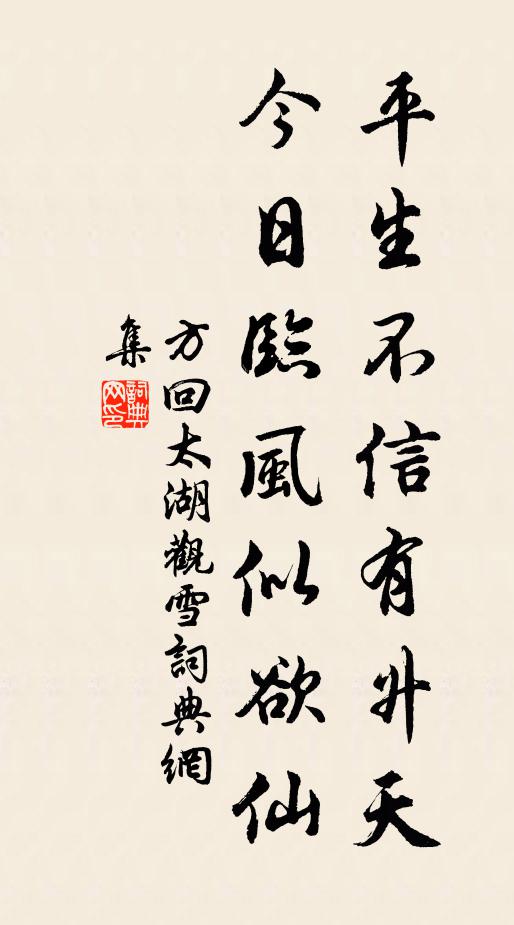 平生不信有升天
今日臨風似欲仙
方回太湖觀雪詞典網
集
詞典
网印